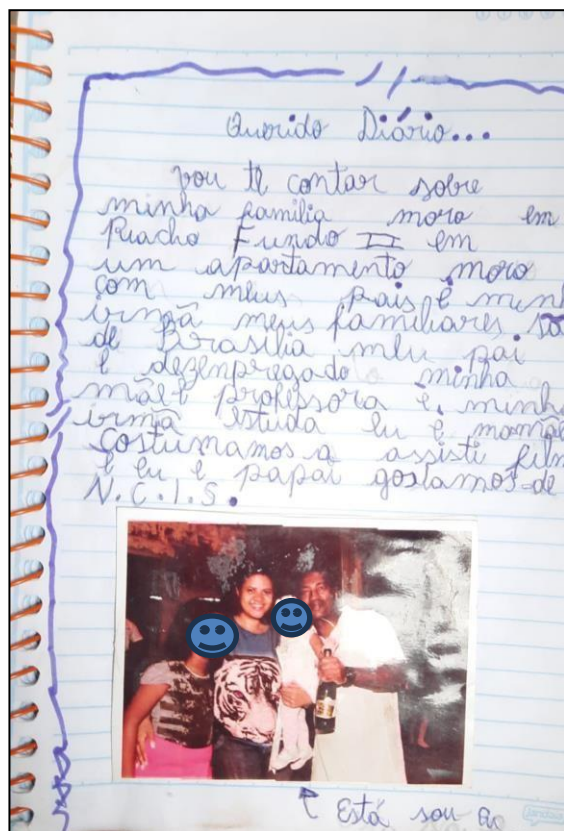 Querido Diário...
vou te contar sobre
minha familia moro em
Riacho Fundo II em
um apartamento moro
com meus pais e minh
irmã meus familiares so
de Brasília meu pai
é dezenpregado minha
mãe é professora e minha
irmã estuda eu e mamãe
costumamos a assisti film
e eu e papai gostamos de
N.C.I.S.
Está sou eu